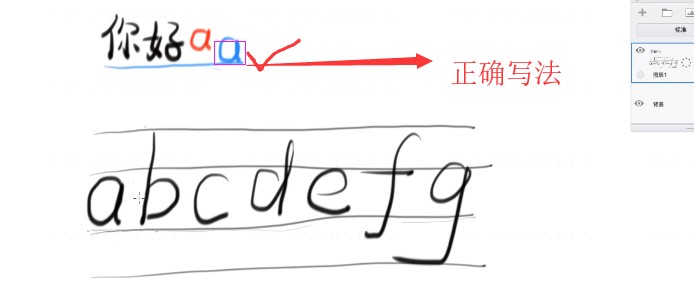 你好aa
正确写法
abcdefg
标准
图层1
背景